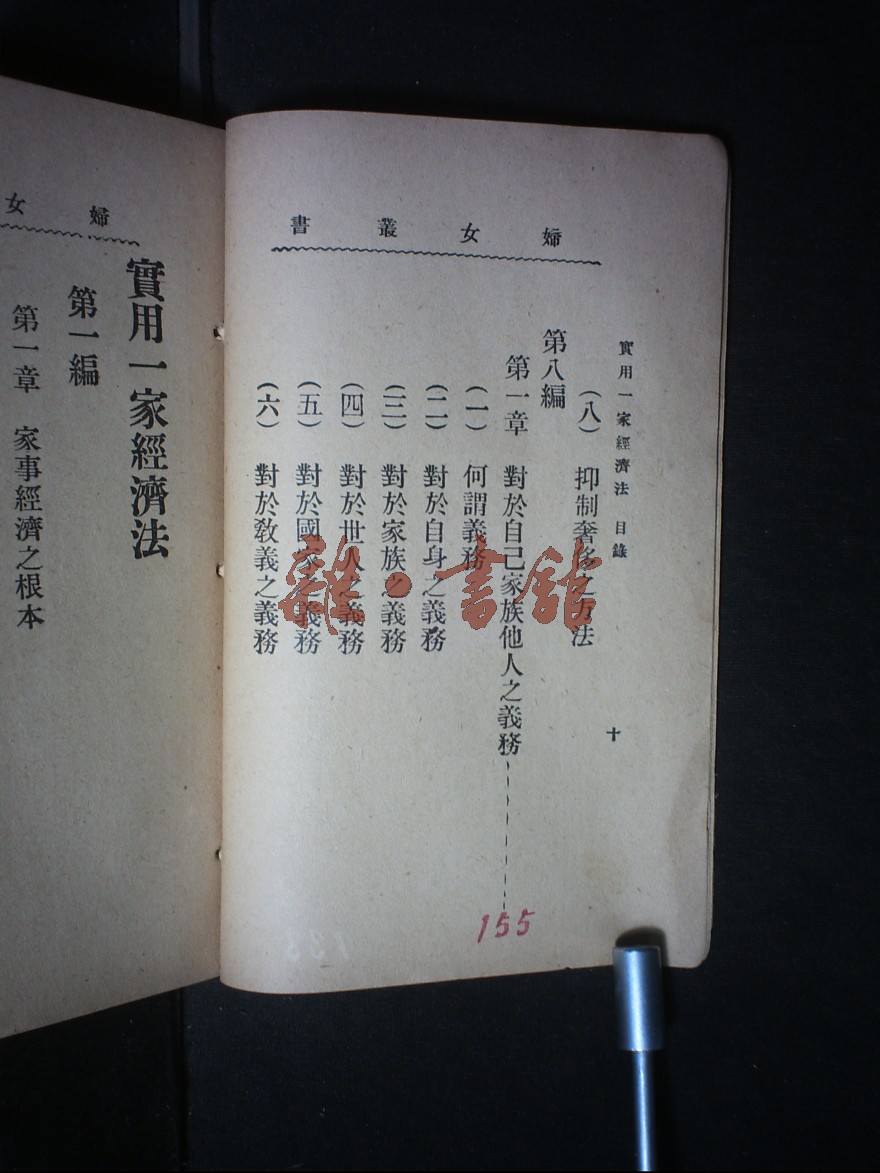 婦女叢書
實用一家經濟法 目錄
十
(八) 抑制奢侈之方法
第八編
第一章 對於自己家族他人之義務
155
(一) 何謂義務
(二) 對於自身之義務
(三) 對於家族之義務
(四) 對於世人之義務
(五) 對於國家之義務
(六) 對於敎義之義務
雜·書館
婦女
實用一家經濟法
第一編
第一章 家事經濟之根本